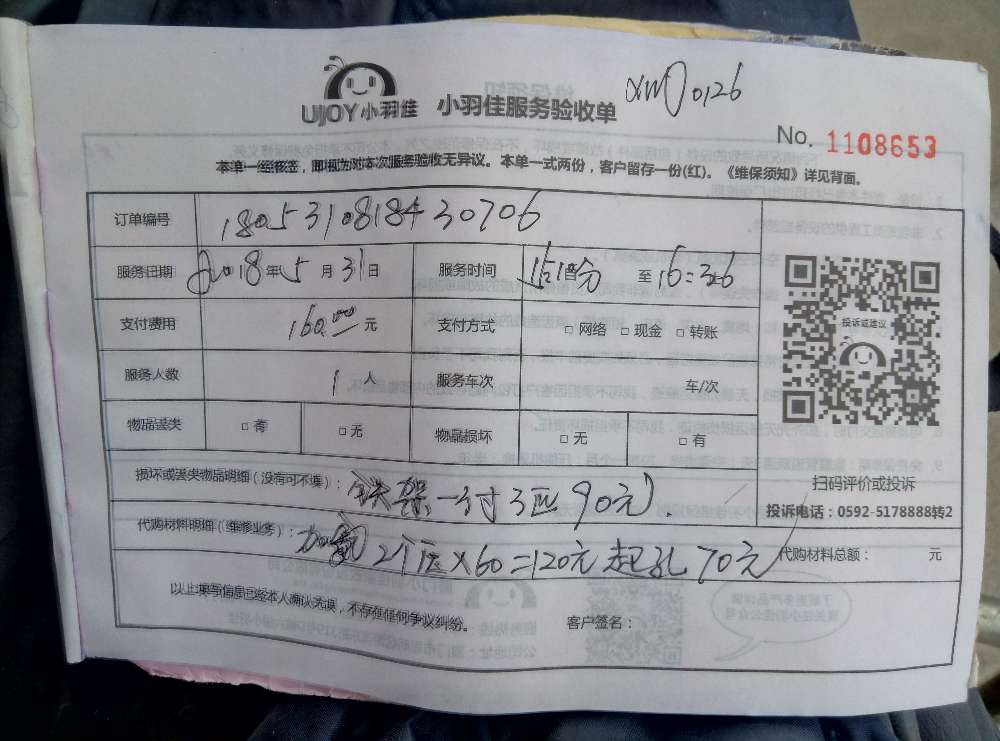 UJOY小羽佳 小羽佳服务验收单 XM0126
No. 1108653
本单一经核签,即视为对本次服务验收无异议。本单一式两份,客户留存一份(红)。《维保须知》详见背面。
订单编号 1805310818430706
服务日期 2018年5月31日 服务时间 至16:36
支付费用 160.00元 支付方式 □网络 □现金 □转账
投诉或建议
服务人数 1人 服务车次 车/次
物品丢失 □有 □无 物品损坏 □无 □有
扫码评价或投诉
损坏或丢失物品明细(没有可不填): 铁架一付3匹90元
投诉电话:0592-5178888转2
代购材料明细(维修业务): 加氟2个压×60=120元 起孔70元 代购材料总额: 元
以上填写信息已经本人确认无误,不存在任何争议纠纷。 客户签名: